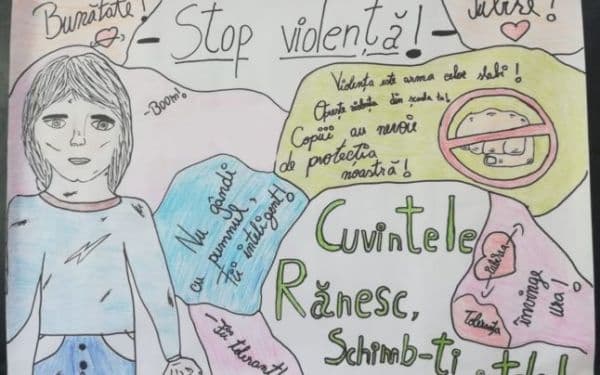 Bunătate!
Iubire!
- Stop violență! -
-Boom!
Violența este arma celor slabi!
Oprește violența din școala ta!
Copiii au nevoie
de protecția
noastră!
Nu gândi
cu pumnul,
fii inteligent!
Cuvintele
Rănesc,
Schimb-ți
Iubirea
Toleranța
învinge
ura!
-Fii tolerant!